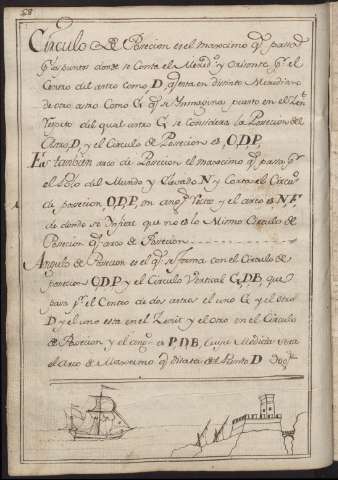 68
Circulo de Posicion es el maximo q.e pasa
p.r los puntos donde se Corta el Merid.o y orisonte p.r el
Centro del astro como, D,
de otro astro Como G
respeto del qual astro G se considera la Posicion del
Astro, D, y el Circulo de Posicion es, O,D,P,
Es tambien arco de Posicion el maximo q.e pasa p.r
el Polo del Mundo y llevado N y Corta el Circu.o
de posicion, O,D,P, en ang.o recto y el arco es N F,
de donde se Ynfiere que no es lo Mismo Circulo de
Posicion q.e arco de Posicion
Angulo de Posicion es el q.e se forma con el Circulo de
posicion O D P y el Circulo Vertical G, D B, que
pasa p.r el Centro de dos astros el uno G y el otro
D y el uno esta en el Zenit y el otro en el Circulo
de Posicion y el ang.o es P D B, cuya Medida es ta
el Arco de Maximo q.e dista del Punto D 90 g.s